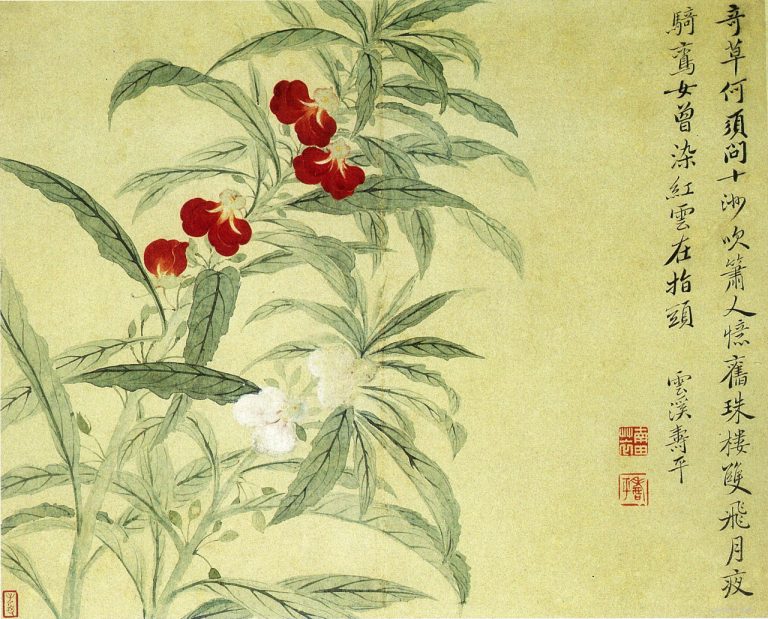 奇草何須問十洲吹簫人憶舊珠樓雙飛月夜
騎鸞女曾染紅雲在指頭
雲溪壽平
南田艸衣
壽平